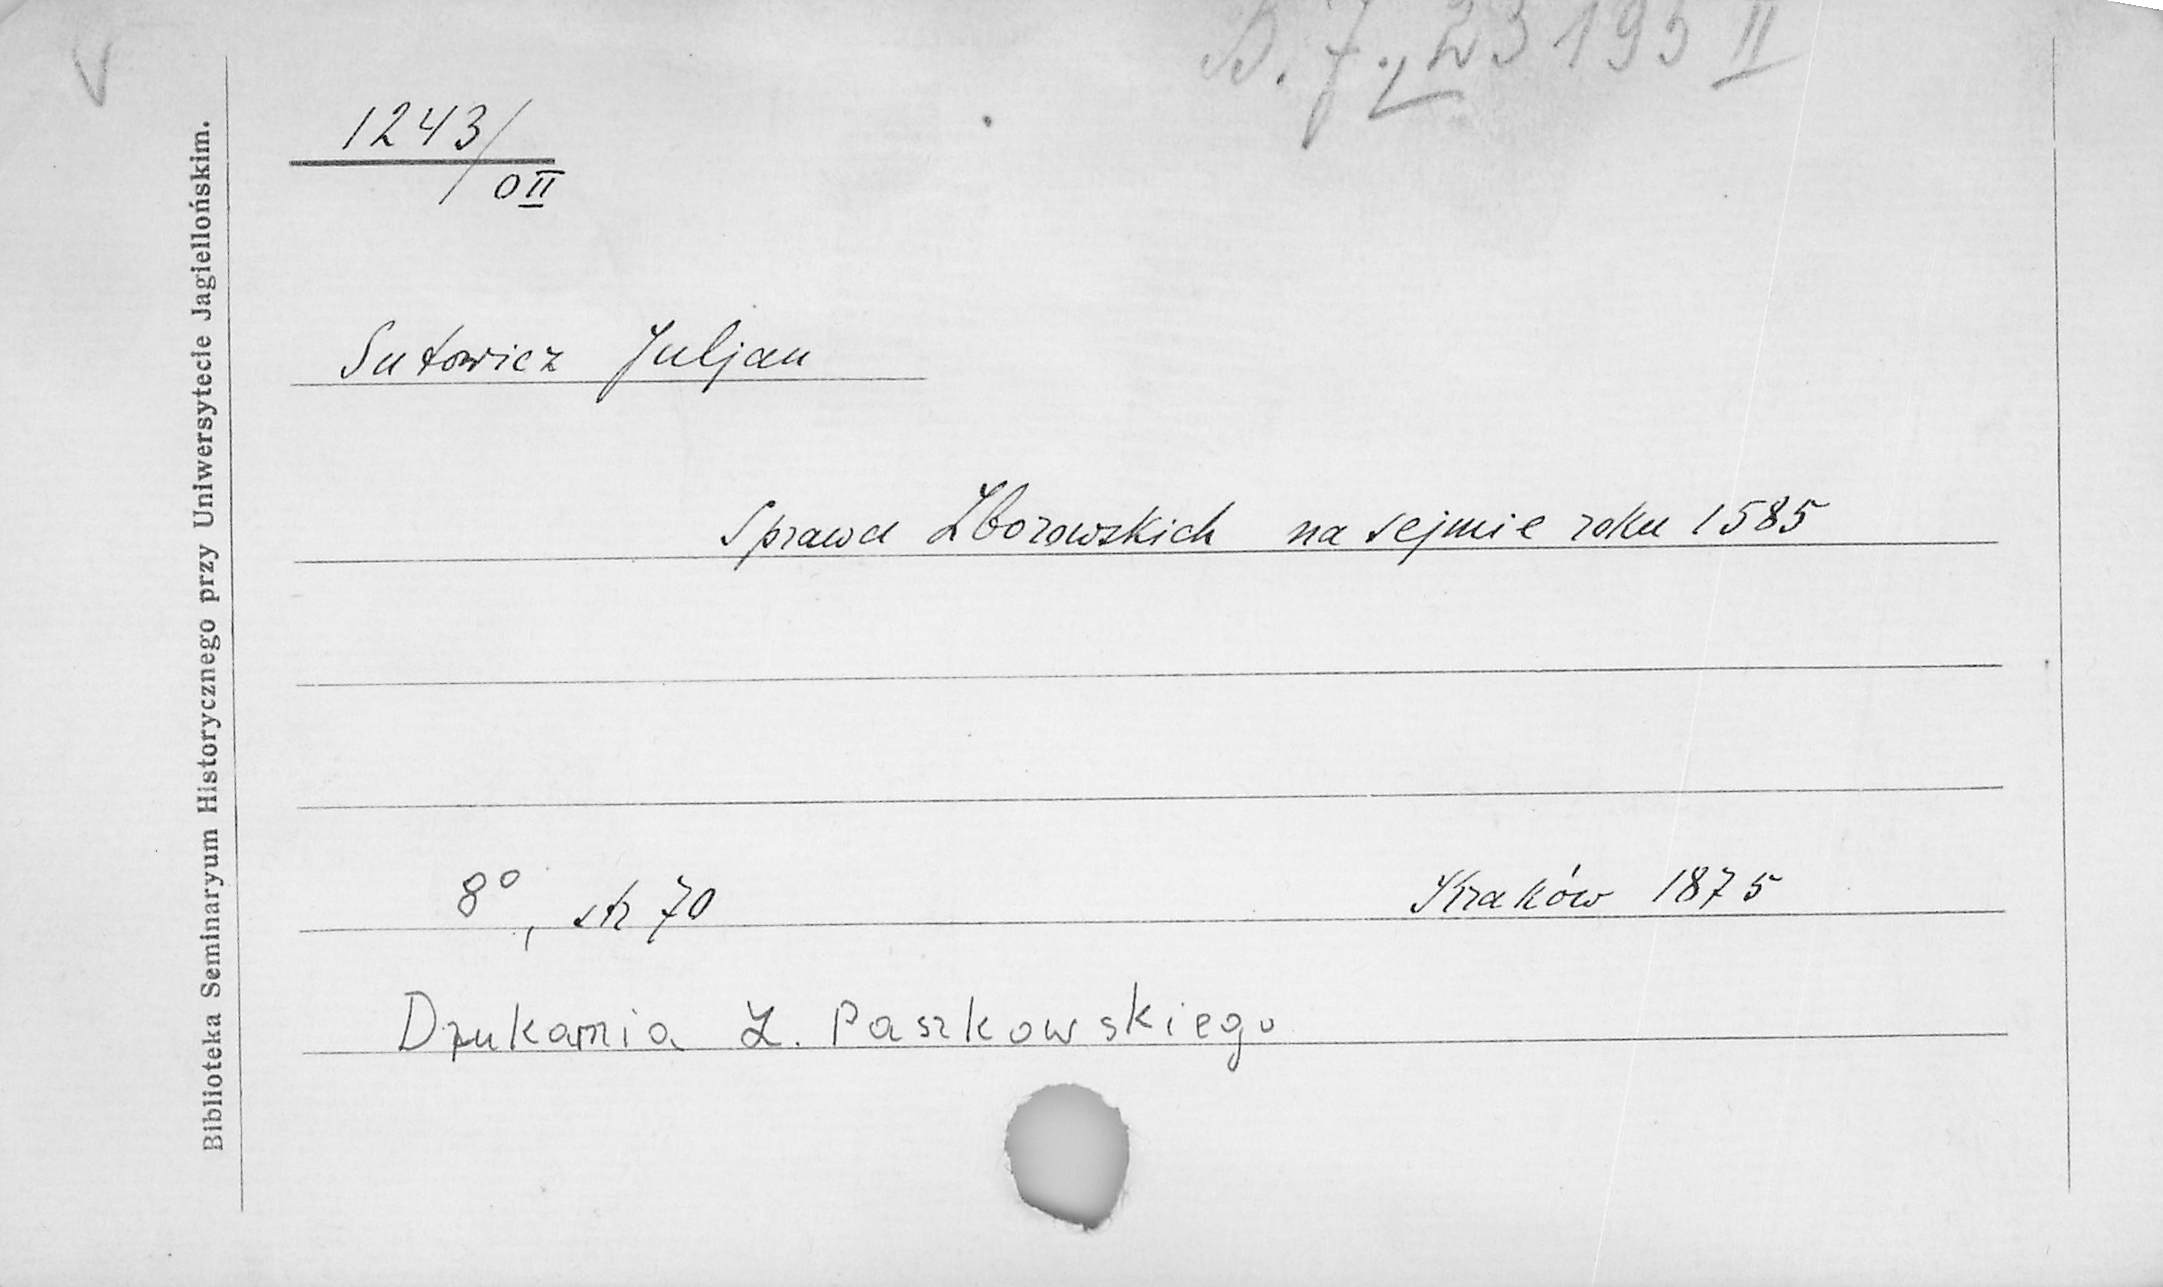 B. J. 23195 II
1243/
O II
Sutowicz Juljan
Sprawa Zborowskich na sejmie roku 1585
8°, str 70 Kraków 1875
Drukarnia L. Paszkowskiego
Biblioteka Seminaryum Historycznego przy Uniwersytecie Jagiellońskim.